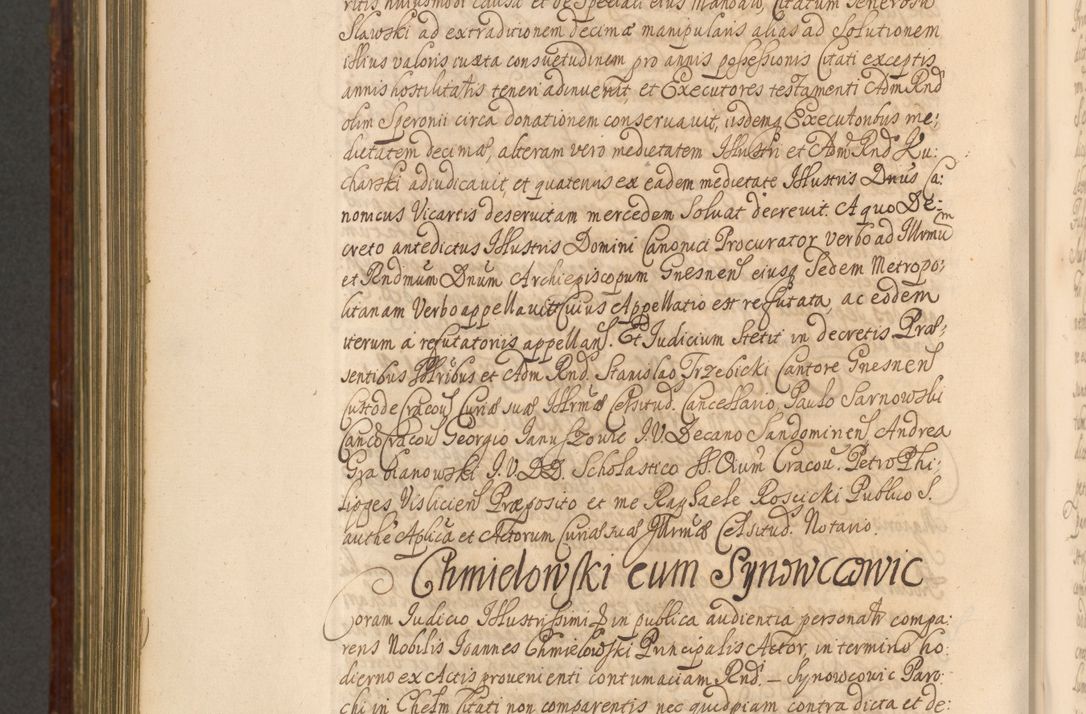 ritis huiusmodi causa et de Speciali eius Mandato, Citatum Generosu
Slawski ad extraditionem decimæ manipularis alias ad Solutionem
illius valoris iuxta consvetudinem pro annis possessionis Citati exceptis
annis hostilitatis teneri adinuenit, et Executores testamenti Adm Rnd
olim Speronii circa donationem conseruauit, iisdemq Executoribus me:
dietatem decimæ, alteram vero medietatem Illustri et Adm Rnd Ku:
charski adiudicauit et quatenus ex eadem medietate Illustris Dnus Ca:
nonicus Vicariis deservitam mercedem Soluat decreuit. A quo De:
creto antedictus Illustris Domini Canonici Procurator Verbo ad Illrmum
et Rndmum Dnum Archiepiscopum Gnesnens eiusq Sedem Metropo:
litanam Verbo appellauit Cuius Appellatio est refutata, ac eodem
iterum á refutatoriis appellans. Et Iudicium Stetit in decretis Præ:
sentibus Illribus et Adm Rnd. Stanislao Trzebicki Cantore Gnesnens
Custode Cracou Curiæ suæ Illrmæ Celsitud. Cancellario, Paulo Sarnowski
Canco Cracou Georgio Ianuszowic I.V.D Decano Sandominens Andrea
Grabianowski I.V.DD. Scholastico SS. Oium Cracou. Petro Phi:
lippes Visliciens Præposito et me Raphaele Roscicki Publico S.
authe Aplica et Actorum Curiæ suæ Illrmæ Celsitud. Notario.
Chmielowski cum Synowcowic
Coram Iudicio Illustrissimi P in publica audientia personatr compa:
rens Nobilis Ioannes Chmielowski Principalis Actor, in termino ho:
dierno ex Actis provenienti contumaciam Rnd. – Synowcovic Paro:
chi in Chelm Citati non comparentis nec quidpiam contradicta et de: